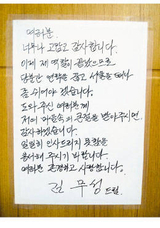 여러분.
너무나 고맙고 감사합니다.
이제 제 역할이 끝났으므로
당분간 연락을 끊고 서울을 떠나
좀 쉬어야 겠습니다.
도와주신 여러분께
저의 마음속의 큰절을 받아주시면
감사하겠습니다.
일일히 인사드리지 못함을
용서해 주시기 바랍니다.
여러분 존경하고 사랑합니다.
김무성 드림.